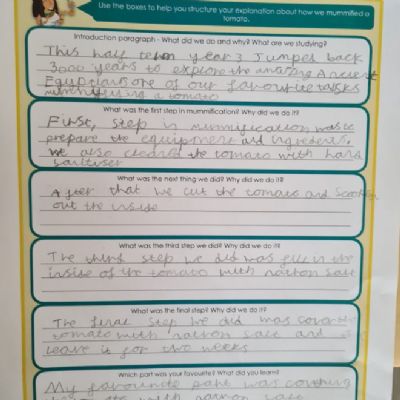 Use the boxes to help you structure your explanation about how we mummified a
tomato.
Introduction paragraph - What did we do and why? What are we studying?
This half term year 3 Jumped back
3000 years to explore the amazing Ancient
Egyptians one of our favourite tasks
mummifying a tomato
What was the first step in mummification? Why did we do it?
First, step in mummification was to
prepare the equipment and ingredients.
We also cleaned the tomato with hand
sanitiser
What was the next thing we did? Why did we do it?
After that we cut the tomato and scooped
out the inside
What was the third step we did? Why did we do it?
The third step we did was fill in the
inside of the tomato with natron salt
What was the final step? Why did we do it?
The final step we did was cover
tomato with natron salt and
leave it for two weeks
Which part was your favourite? What did you learn?
My favourite part was covering
with natron salt